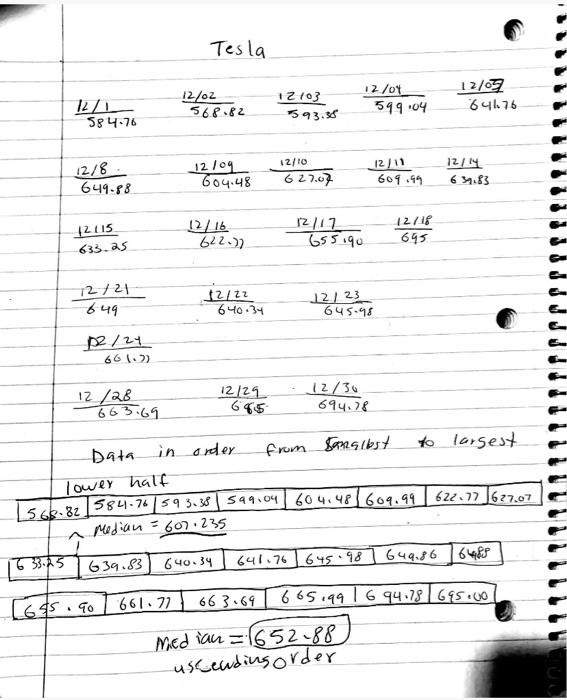 Tesla
12/1 12/02 12/03 12/04 12/07
584.76 568.82 593.38 599.04 641.76
12/8 12/09 12/10 12/11 12/14
649.88 604.48 627.07 609.99 639.83
12/15 12/16 12/17 12/18
633.25 622.77 655.90 695
12/21 12/22 12/23
649 640.34 645.98
12/24
661.77
12/28 12/29 12/30
663.69 665 694.78
Data in order from to largest
lower half
568.82 584.76 593.38 599.04 604.48 609.99 622.77 627.07
Median = 607.235
633.25 639.83 640.34 641.76 645.98 649.86
655.90 661.77 663.69 665.99 694.78 695.00
Median = 652.88
ascending order